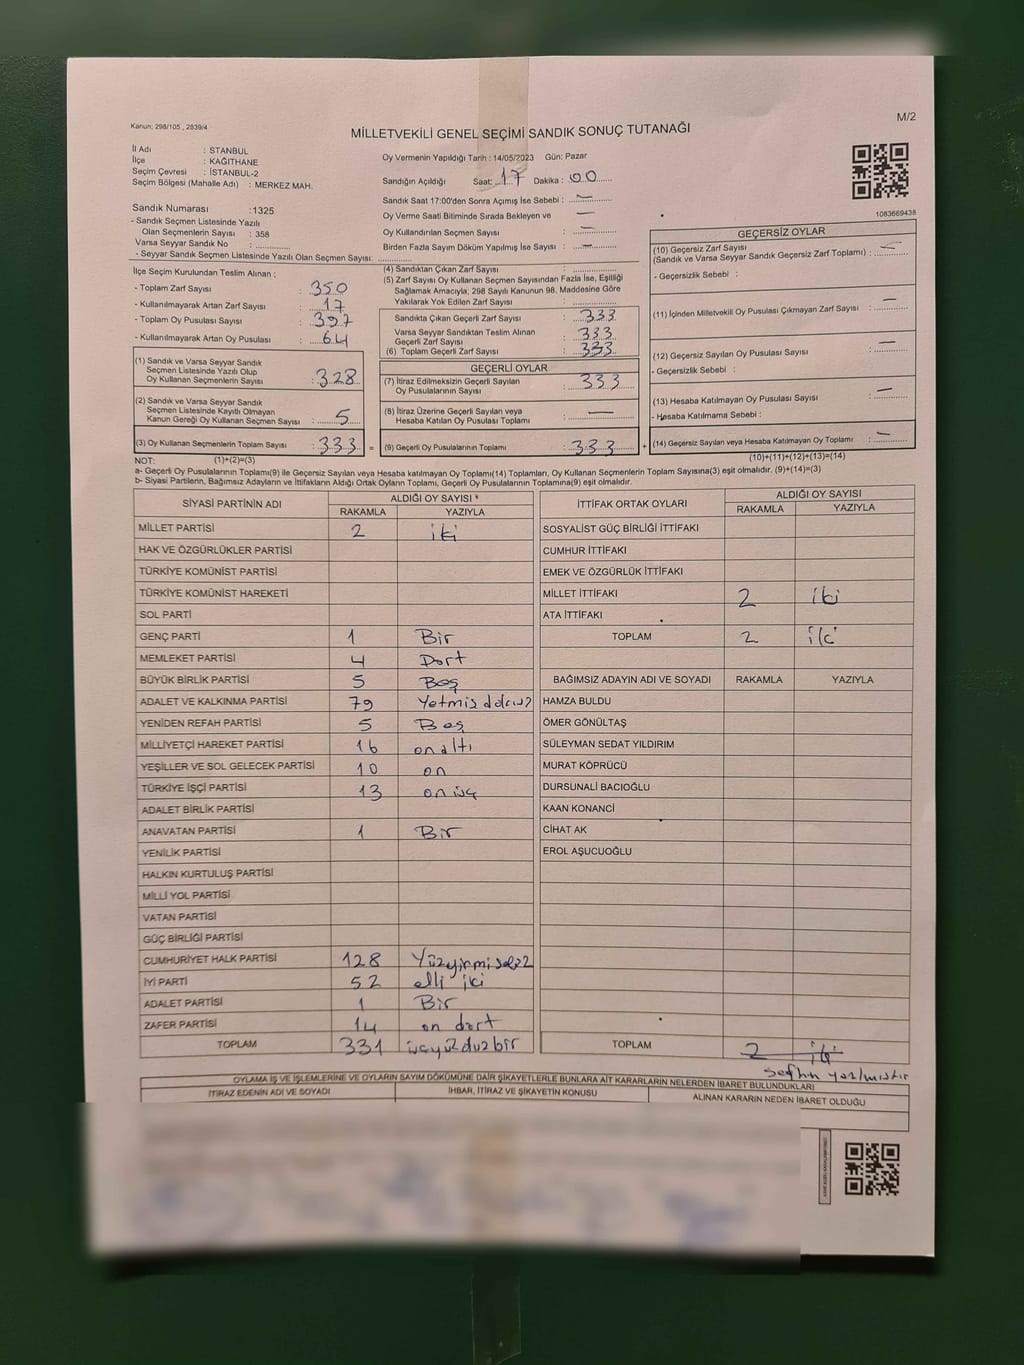 Kanun; 298/105 , 2839/4
M/2
MİLLETVEKİLİ GENEL SEÇİMİ SANDIK SONUÇ TUTANAĞI
İl Adı : STANBUL
İlçe : KAĞITHANE
Seçim Çevresi : İSTANBUL-2
Seçim Bölgesi (Mahalle Adı) : MERKEZ MAH.
Oy Vermenin Yapıldığı Tarih : 14/05/2023 Gün: Pazar
Sandığın Açıldığı Saat: 17 Dakika : 00
Sandık Saat 17:00'den Sonra Açımış İse Sebebi : —
Oy Verme Saati Bitiminde Sırada Bekleyen ve —
Oy Kullandırılan Seçmen Sayısı : —
Birden Fazla Sayım Döküm Yapılmış İse Sayısı : —
Sandık Numarası :1325
- Sandık Seçmen Listesinde Yazılı
Olan Seçmenlerin Sayısı : 358
Varsa Seyyar Sandık No :
- Seyyar Sandık Seçmen Listesinde Yazılı Olan Seçmen Sayısı:
1083669438
İlçe Seçim Kurulundan Teslim Alınan ;
- Toplam Zarf Sayısı : 350
- Kullanılmayarak Artan Zarf Sayısı : 17
- Toplam Oy Pusulası Sayısı : 397
- Kullanılmayarak Artan Oy Pusulası : 64
(1) Sandık ve Varsa Seyyar Sandık
Seçmen Listesinde Yazılı Olup
Oy Kullanan Seçmenlerin Sayısı : 328
(2) Sandık ve Varsa Seyyar Sandık
Seçmen Listesinde Kayıtlı Olmayan
Kanun Gereği Oy Kullanan Seçmen Sayısı : 5
(3) Oy Kullanan Seçmenlerin Toplam Sayısı : 333 =
(4) Sandıktan Çıkan Zarf Sayısı :
(5) Zarf Sayısı Oy Kullanan Seçmen Sayısından Fazla İse, Eşitliği
Sağlamak Amacıyla, 298 Sayılı Kanunun 98. Maddesine Göre
Yakılarak Yok Edilen Zarf Sayısı :
Sandıkta Çıkan Geçerli Zarf Sayısı : 333
Varsa Seyyar Sandıktan Teslim Alınan
Geçerli Zarf Sayısı : 333
(6) Toplam Geçerli Zarf Sayısı : 333
GEÇERLİ OYLAR
(7) İtiraz Edilmeksizin Geçerli Sayılan
Oy Pusulalarının Sayısı : 333
(8) İtiraz Üzerine Geçerli Sayılan veya
Hesaba Katılan Oy Pusulası Toplamı : —
(9) Geçerli Oy Pusulalarının Toplamı : 333 +
GEÇERSİZ OYLAR
(10) Geçersiz Zarf Sayısı
(Sandık ve Varsa Seyyar Sandık Geçersiz Zarf Toplamı) : —
- Geçersizlik Sebebi :
(11) İçinden Milletvekili Oy Pusulası Çıkmayan Zarf Sayısı : —
(12) Geçersiz Sayılan Oy Pusulası Sayısı : —
- Geçersizlik Sebebi :
(13) Hesaba Katılmayan Oy Pusulası Sayısı : —
- Hesaba Katılmama Sebebi :
(14) Geçersiz Sayılan veya Hesaba Katılmayan Oy Toplamı : —
NOT: (1)+(2)=(3) (10)+(11)+(12)+(13)=(14)
a- Geçerli Oy Pusulalarının Toplamı(9) ile Geçersiz Sayılan veya Hesaba katılmayan Oy Toplamı(14) Toplamları, Oy Kullanan Seçmenlerin Toplam Sayısına(3) eşit olmalıdır. (9)+(14)=(3)
b- Siyasi Partilerin, Bağımsız Adayların ve İttifakların Aldığı Ortak Oyların Toplamı, Geçerli Oy Pusulalarının Toplamına(9) eşit olmalıdır.
SİYASİ PARTİNİN ADI ALDIĞI OY SAYISI
RAKAMLA YAZIYLA
MİLLET PARTİSİ 2 iki
HAK VE ÖZGÜRLÜKLER PARTİSİ
TÜRKİYE KOMÜNİST PARTİSİ
TÜRKİYE KOMÜNİST HAREKETİ
SOL PARTİ
GENÇ PARTİ 1 Bir
MEMLEKET PARTİSİ 4 Dort
BÜYÜK BİRLİK PARTİSİ 5 Beş
ADALET VE KALKINMA PARTİSİ 79 Yetmiş
YENİDEN REFAH PARTİSİ 5 Beş
MİLLİYETÇİ HAREKET PARTİSİ 16 on altı
YEŞİLLER VE SOL GELECEK PARTİSİ 10 on
TÜRKİYE İŞÇİ PARTİSİ 13 on üç
ADALET BİRLİK PARTİSİ
ANAVATAN PARTİSİ 1 Bir
YENİLİK PARTİSİ
HALKIN KURTULUŞ PARTİSİ
MİLLİ YOL PARTİSİ
VATAN PARTİSİ
GÜÇ BİRLİĞİ PARTİSİ
CUMHURİYET HALK PARTİSİ 128 Yüzyirmisekiz
İYİ PARTİ 52 elli iki
ADALET PARTİSİ 1 Bir
ZAFER PARTİSİ 14 on dört
TOPLAM 331 üçyüzduzbir
İTTİFAK ORTAK OYLARI ALDIĞI OY SAYISI
RAKAMLA YAZIYLA
SOSYALİST GÜÇ BİRLİĞİ İTTİFAKI
CUMHUR İTTİFAKI
EMEK VE ÖZGÜRLÜK İTTİFAKI
MİLLET İTTİFAKI 2 iki
ATA İTTİFAKI
TOPLAM 2 iki
BAĞIMSIZ ADAYIN ADI VE SOYADI RAKAMLA YAZIYLA
HAMZA BULDU
ÖMER GÖNÜLTAŞ
SÜLEYMAN SEDAT YILDIRIM
MURAT KÖPRÜCÜ
DURSUNALİ BACIOĞLU
KAAN KONANCİ
CİHAT AK
EROL AŞUCUOĞLU
TOPLAM 2 iki
sehven yazılmıştır
OYLAMA İŞ VE İŞLEMLERİNE VE OYLARIN SAYIM DÖKÜMÜNE DAİR ŞİKAYETLERLE BUNLARA AİT KARARLARIN NELERDEN İBARET BULUNDUKLARI
İTİRAZ EDENİN ADI VE SOYADI İHBAR, İTİRAZ VE ŞİKAYETİN KONUSU ALINAN KARARIN NEDEN İBARET OLDUĞU